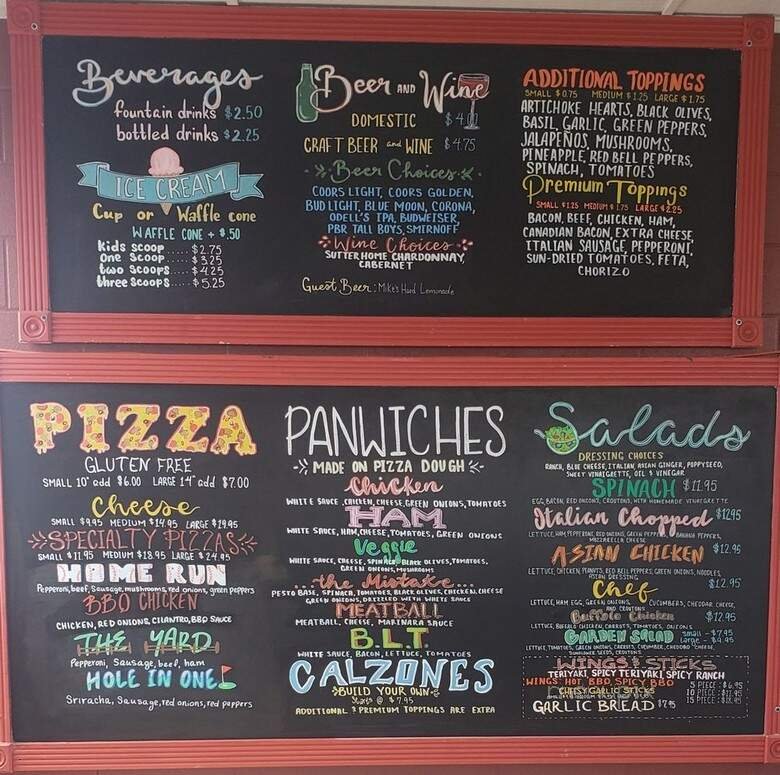 Beverages
fountain drinks $2.50
bottled drinks $2.25
ICE CREAM
Cup or Waffle cone
WAFFLE CONE + $.50
kids scoop..... $2.75
One Scoop..... $3.25
two scoops..... $4.25
three scoops..... $5.25
Beer AND Wine
DOMESTIC $4.00
CRAFT BEER and WINE $4.75
Beer Choices
COORS LIGHT, COORS GOLDEN,
BUD LIGHT, BLUE MOON, CORONA,
ODELL'S IPA, BUDWEISER,
PBR TALL BOYS, SMIRNOFF
Wine Choices
SUTTER HOME CHARDONNAY,
CABERNET
Guest Beer: Mike's Hard Lemonade
ADDITIONAL TOPPINGS
SMALL $0.75 MEDIUM $1.25 LARGE $1.75
ARTICHOKE HEARTS, BLACK OLIVES,
BASIL, GARLIC, GREEN PEPPERS,
JALAPEÑOS, MUSHROOMS,
PINEAPPLE, RED BELL PEPPERS,
SPINACH, TOMATOES
Premium Toppings
SMALL $1.25 MEDIUM $1.75 LARGE $2.25
BACON, BEEF, CHICKEN, HAM,
CANADIAN BACON, EXTRA CHEESE,
ITALIAN SAUSAGE, PEPPERONI,
SUN-DRIED TOMATOES, FETA,
CHORIZO
PIZZA
GLUTEN FREE
SMALL 10" add $6.00 LARGE 14" add $7.00
Cheese
SMALL $9.95 MEDIUM $14.95 LARGE $19.95
SPECIALTY PIZZAS
SMALL $11.95 MEDIUM $18.95 LARGE $24.95
HOME RUN
Pepperoni, beef, Sausage, mushrooms, red onions, green peppers
BBQ CHICKEN
CHICKEN, RED ONIONS, CILANTRO, BBQ SAUCE
THE YARD
Pepperoni, Sausage, beef, ham
HOLE IN ONE
Sriracha, Sausage, red onions, red peppers
PANWICHES
MADE ON PIZZA DOUGH
Chicken
WHITE SAUCE, CHICKEN, CHEESE, GREEN ONIONS, TOMATOES
HAM
WHITE SAUCE, HAM, CHEESE, TOMATOES, GREEN ONIONS
Veggie
WHITE SAUCE, CHEESE, SPINACH, BLACK OLIVES, TOMATOES,
GREEN ONIONS, MUSHROOMS
...the Mistake...
PESTO BASE, SPINACH, TOMATOES, BLACK OLIVES, CHICKEN, CHEESE
GREEN ONIONS, DRIZZLED WITH WHITE SAUCE
MEATBALL
MEATBALL, CHEESE, MARINARA SAUCE
B.L.T.
WHITE SAUCE, BACON, LETTUCE, TOMATOES
CALZONES
BUILD YOUR OWN
Starts @ $7.95
ADDITIONAL & PREMIUM TOPPINGS ARE EXTRA
Salads
DRESSING CHOICES
RANCH, BLUE CHEESE, ITALIAN, ASIAN GINGER, POPPYSEED,
SWEET VINAIGRETTE, OIL & VINEGAR
SPINACH $11.95
EGG, BACON, RED ONIONS, CROUTONS, WITH HOMEMADE VINAIGRETTE
Italian Chopped $12.95
LETTUCE, HAM, PEPPERONI, RED ONIONS, GREEN PEPPERS, BANANA PEPPERS,
MOZZARELLA CHEESE
ASIAN CHICKEN $12.95
LETTUCE, CHICKEN, PEANUTS, RED BELL PEPPERS, GREEN ONIONS, NOODLES,
ASIAN DRESSING
Chef $12.95
LETTUCE, HAM, EGG, GREEN ONIONS, CUCUMBERS, CHEDDAR CHEESE,
AND CROUTONS
Buffalo Chicken $12.95
LETTUCE, BUFFALO CHICKEN, CARROTS, TOMATOES, ONIONS
GARDEN SALAD small - $7.95
Large - $9.95
LETTUCE, TOMATOES, GREEN ONIONS, CARROTS, CUCUMBER, CHEDDAR CHEESE,
SUNFLOWER SEEDS, CROUTONS
WINGS & STICKS
TERIYAKI, SPICY TERIYAKI, SPICY RANCH
WINGS: HOT BBQ, SPICY BBQ 5 PIECE: $6.95
CHEESY GARLIC STICKS 10 PIECE: $11.95
GARLIC BREAD $7.95 15 PIECE: